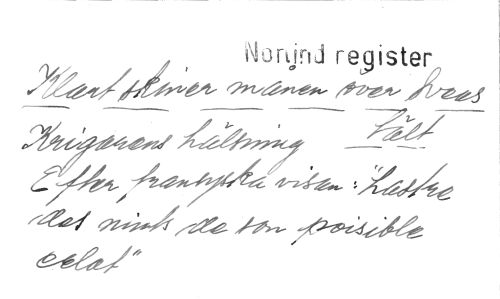 Norlind register
Klart skiner månen över Sveas
tält
Krigarens hälsning
Efter franyska visan: "Lastre
des nuits de son poisible
eclat"